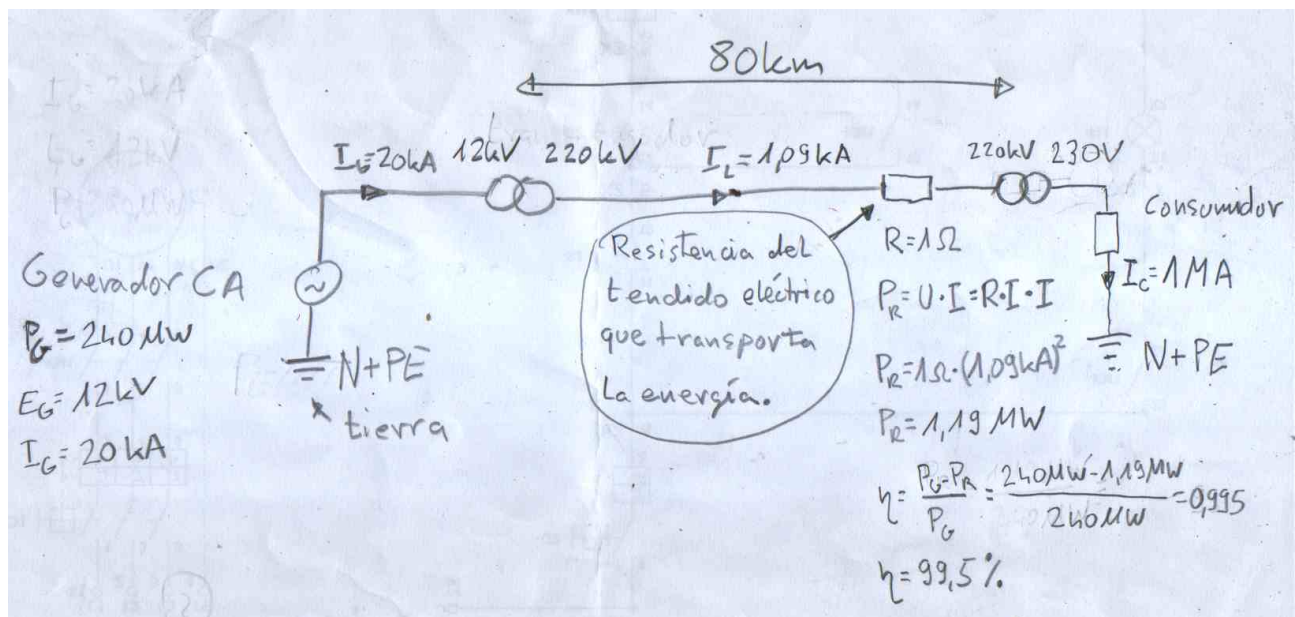 80km
I_G=20kA 12kV 220kV I_L=1,09kA 220kV 230V
Generador CA
P_G=240MW
E_G=12kV
I_G=20kA
N+PE
tierra
Resistencia del
tendido eléctrico
que transporta
La energía.
R=1Ω
P_R=U·I=R·I·I
P_R=1Ω·(1,09kA)²
P_R=1,19MW
η=P_G-P_R/P_G=240MW-1,19MW/240MW=0,995
η=99,5%
Consumidor
I_C=1MA
N+PE